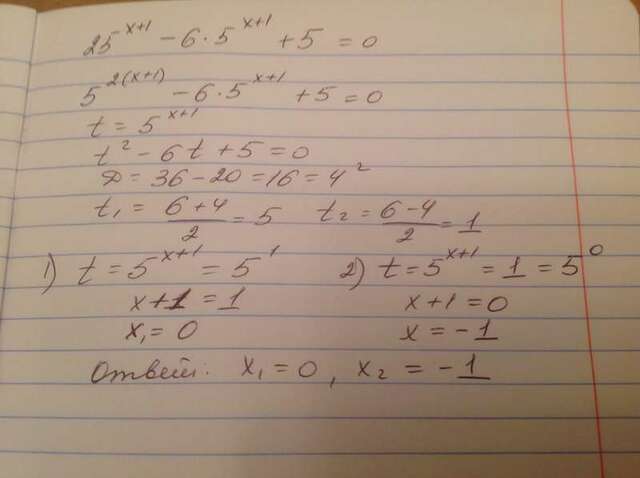 25^(x+1) - 6·5^(x+1) + 5 = 0
5^(2(x+1)) - 6·5^(x+1) + 5 = 0
t = 5^(x+1)
t² - 6t + 5 = 0
D = 36 - 20 = 16 = 4²
t₁ = (6+4)/2 = 5   t₂ = (6-4)/2 = 1
1) t = 5^(x+1) = 5^1   2) t = 5^(x+1) = 1 = 5^0
x+1 = 1   x+1 = 0
x₁ = 0   x = -1
Ответ: x₁ = 0, x₂ = -1